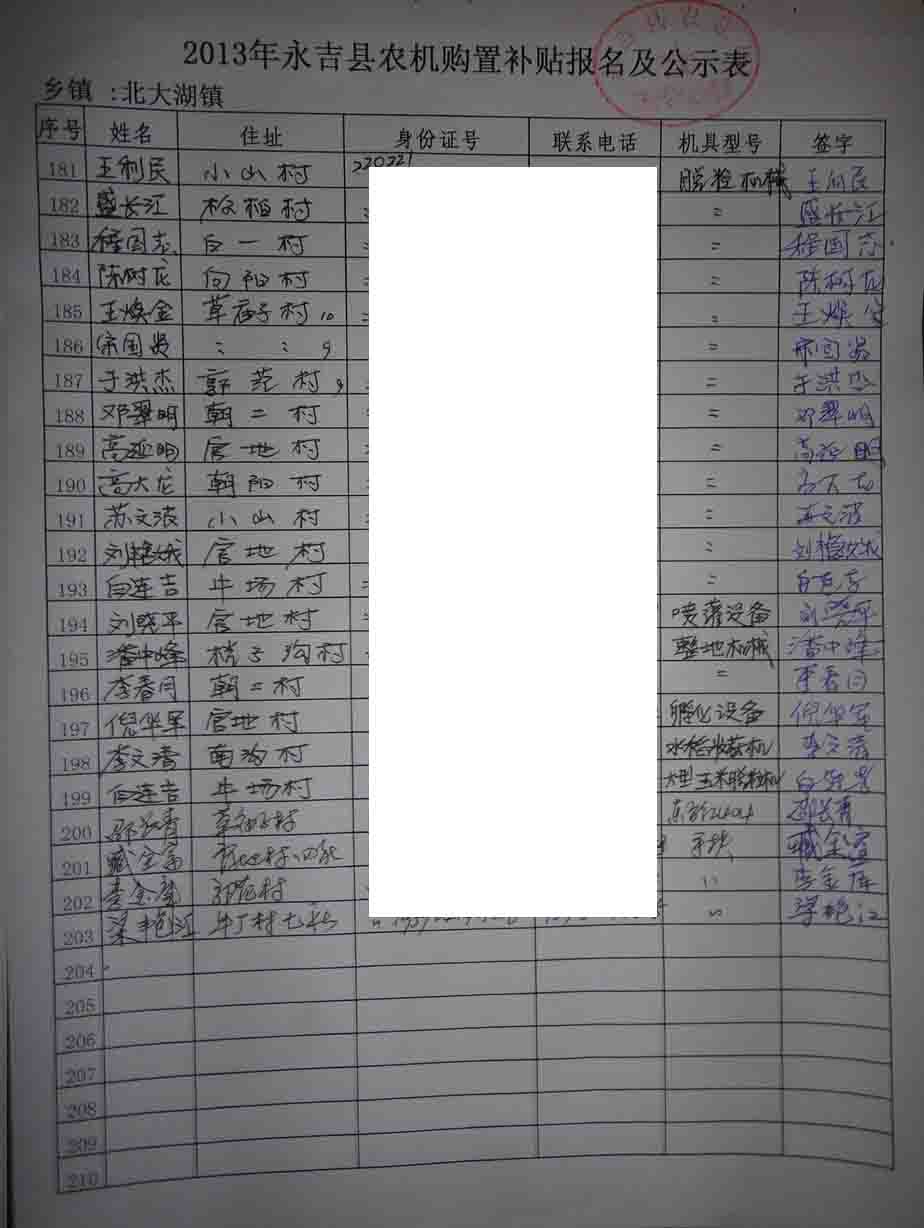 2013年永吉县农机购置补贴报名及公示表
乡镇 :北大湖镇
序号 姓名 住址 身份证号 联系电话 机具型号 签字
181 王利民 小山村 220221 脱粒机械 王利民
182 盛长江 村 〃 〃 盛长江
183 程国志 白一村 〃 〃 程国志
184 陈树龙 向阳村 〃 〃 陈树龙
185 王焕金 草庙子村 〃 〃 〃 王焕金
186 宋国贵 〃 〃 〃 〃 宋国贵
187 于洪杰 郭范村 〃 〃 于洪杰
188 邓翠明 朝二村 〃 〃 邓翠明
189 高延明 官地村 〃 〃 高延明
190 高大龙 朝阳村 〃 〃 高大龙
191 苏文波 小山村 〃 〃 苏文波
192 刘艳娥 官地村 〃 〃 刘艳娥
193 白连吉 牛场村 〃 〃 白连吉
194 刘晓平 官地村 〃 喷灌设备 刘晓平
195 潘中峰 梢子沟村 整地机械 潘中峰
196 李春月 朝二村 〃 李春月
197 倪华军 官地村 孵化设备 倪华军
198 李文清 南沟村 水稻收获机 李文清
199 白连吉 牛场村 大型玉米脱粒机 白连吉
200 邵长青 草庙子村 邵长青
201 臧金富 臧金富
202 李金库 郭范村 〃 李金库
203 梁艳江 〃 梁艳江
204
205
206
207
208
209
210